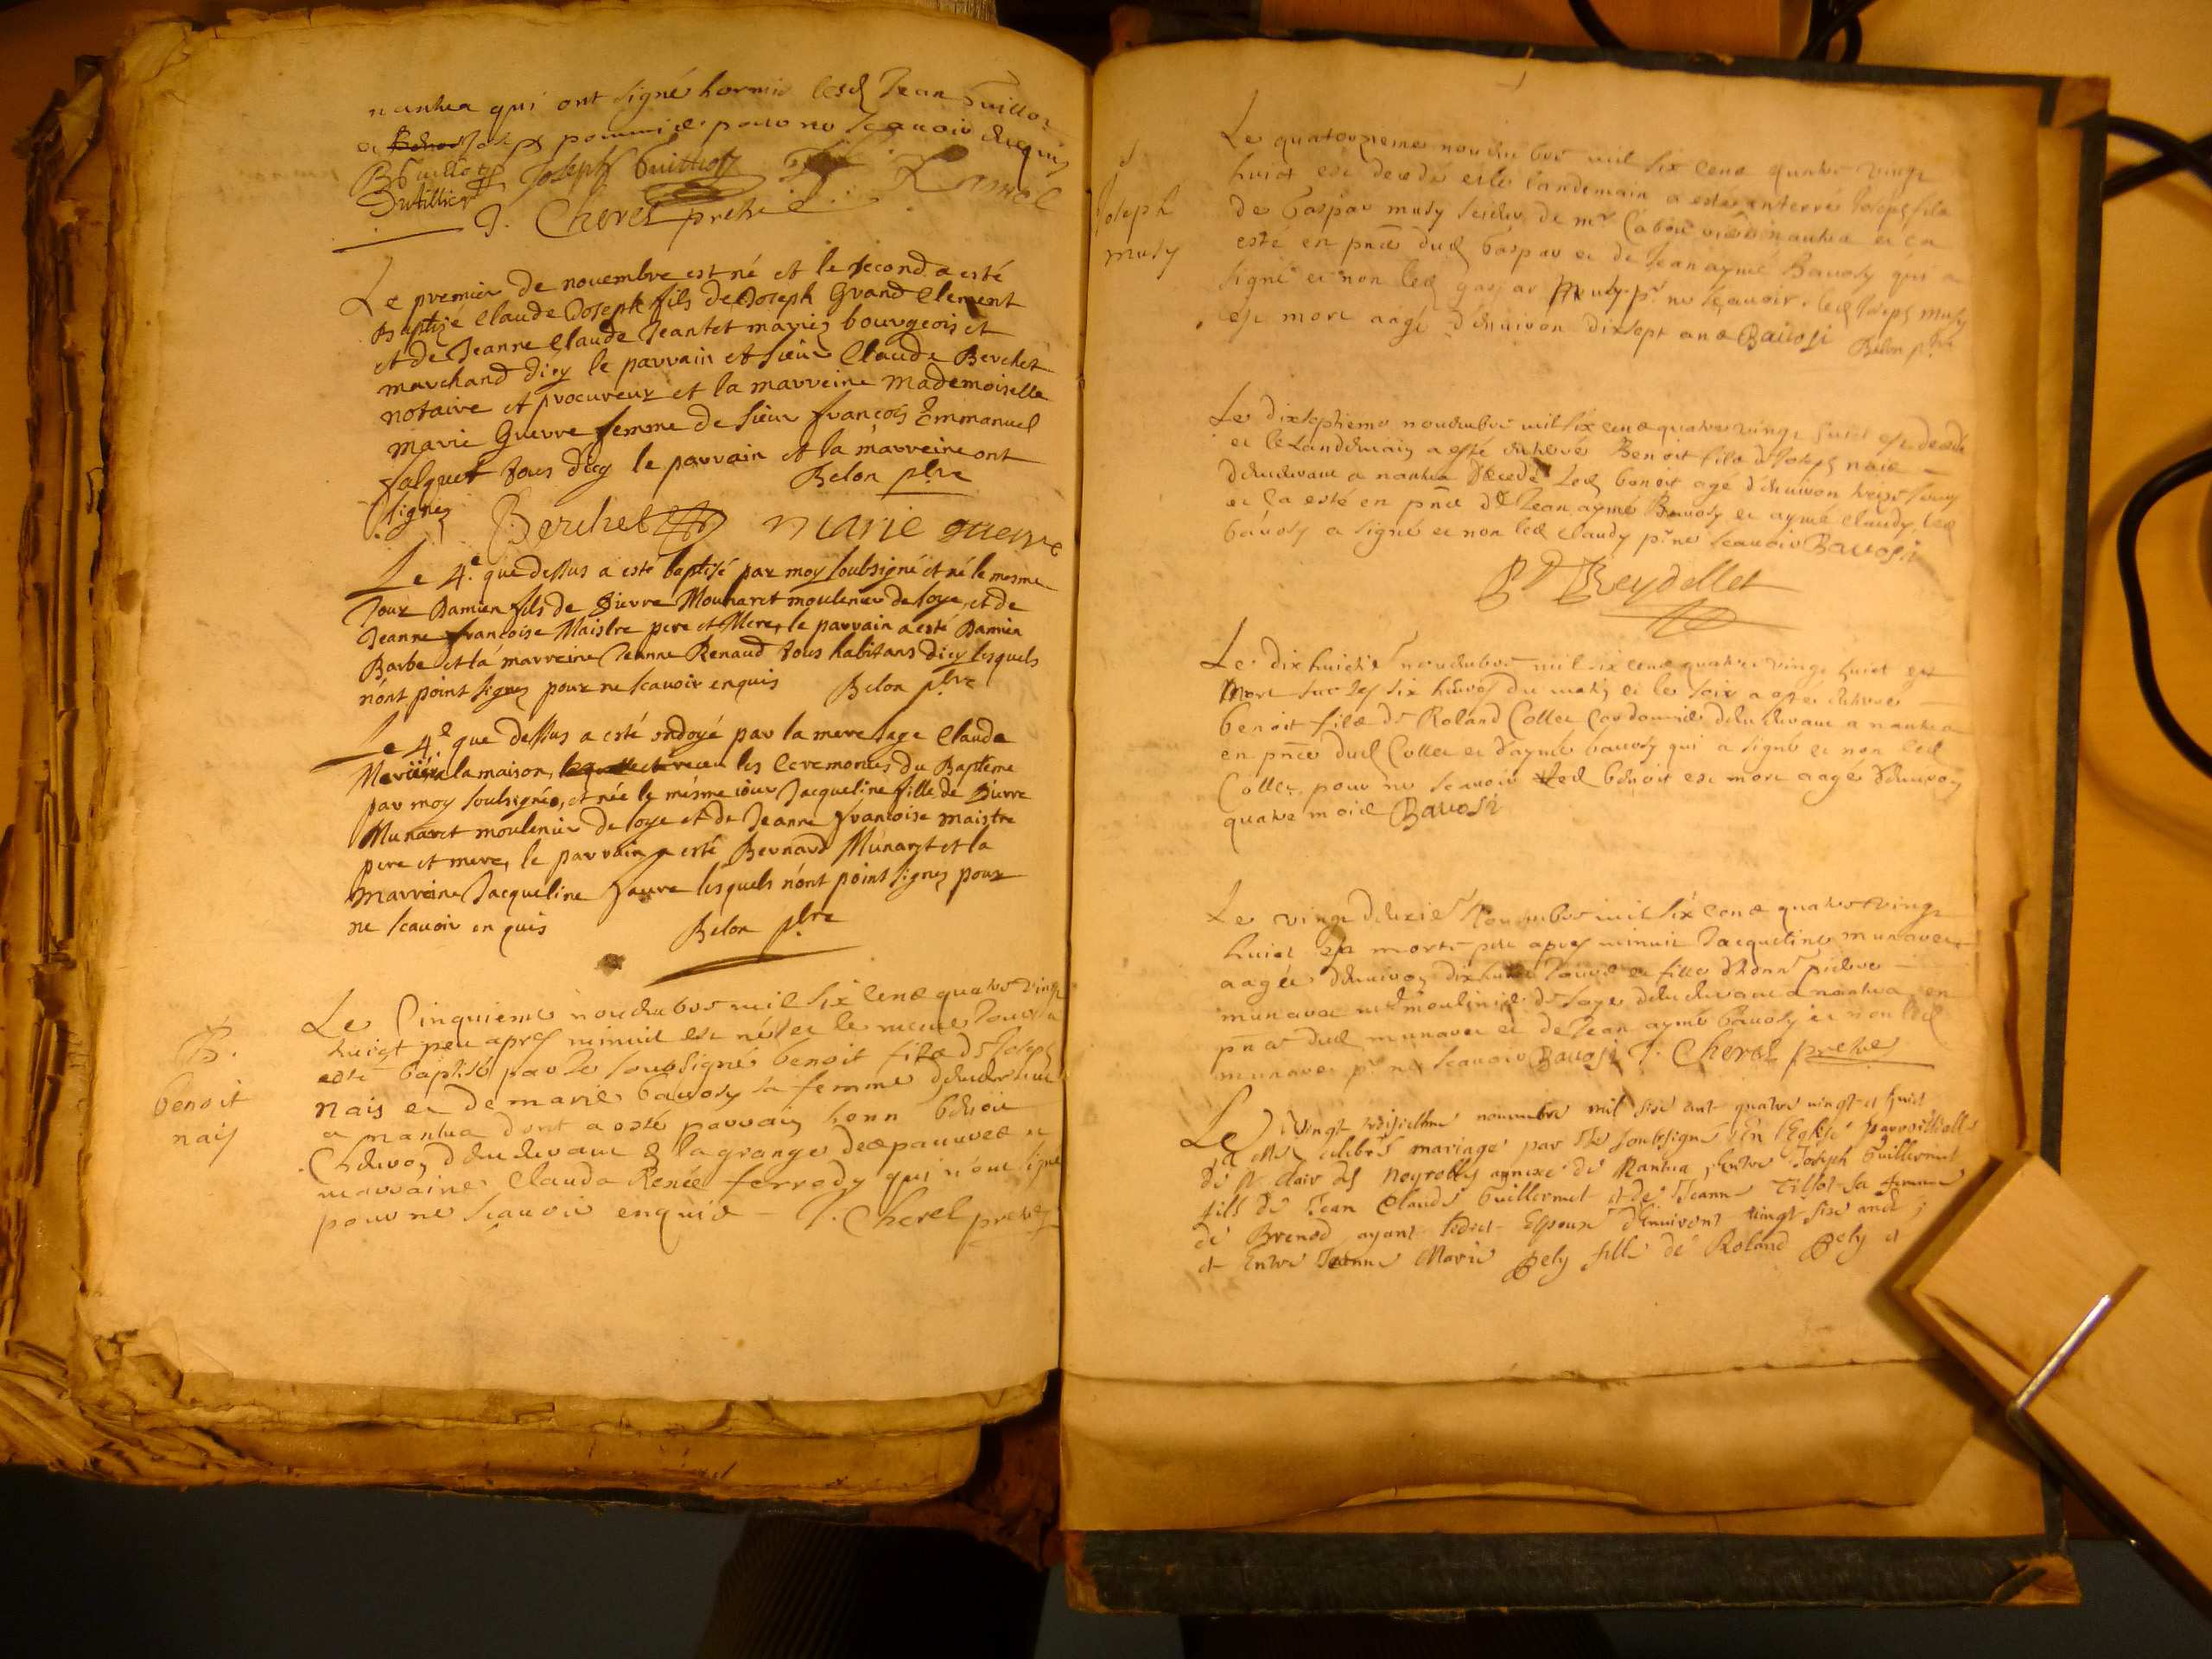 nantua qui ont signé hormis lesd Jean Guillot
et Joseph pour ne scavoir enquis
BGuillot Joseph Guilliot
Dutillier
J. Cherel prestre
Le premier de novembre est né et le second a esté
Baptizé Claude Joseph fils de Joseph Grand Clement
et de Jeanne Claude Jeantet mariez bourgeois et
marchand dicy le parrain et sieur Claude Berchet
notaire et procureur et la marreine Mademoiselle
Marie Guerre femme de sieur françois Emmanuel
Jalquet tous dicy le parrain et la marreine ont
signez Belon pbre
Berchet marie guerre
Le 4.e que dessus a esté baptisé par moy soubsigné et né le mesme
Jour Damien fils de Pierre Mounaret moulenier de soye, et de
Jeanne françoise Maistre pere et Mere, le parrain a esté Damien
Barbe et la marreine Jeanne Renaud tous habitans dicy lesquels
n'ont point signez pour ne scavoir enquis Belon pbre
Le 4.e que dessus a esté ondoyé par la mere sage Claude
la maison, receu les Ceremonies du Baptême
par moy soubsigné, et née le mésme iour Jacqueline fille de Pierre
Munaret moulenier de soye et de Jeanne françoise maistre
pere et mere, le parrain a esté Bernard Munaret et la
Marreine Jacqueline faure lesquels n'ont point signez pour
ne scavoir enquis Belon pbre
B.
benoit
nais
Le Cinquieme novembre mil six cens quatre vingt
huict peu apres minuit est né et le meme Jour a
esté baptisé par le soussigné benoit fils de Joseph
Nais et de marie bavosy sa femme demeurant
a nantua dont a esté parrain honn benoit
demeurant a la grange des pauvres et
marraine Clauda Renée ferrody qui n'ont signé
pour ne scavoir enquis J. Cherel prestre
Joseph
musy
Le quatorzieme novembre mil six cens quatre vingt
huict est decedé et le landemain a esté enterré Joseph fils
de Gaspar musy de mr nantua et ca
esté en pnce dud Gaspar et de Jean aymé Bavosy qui a
signé et non led gaspar Musy pr ne scavoir. led Joseph Musy
est mort aagé d'environ dixsept ans Bavosi Belon pbre
Le dixseptieme novembre mil six cens quatre vingt huict est decedé
et le Landemain a esté enterré Benoit fils de Joseph nais
demeurant a nantua decedé led benoit agé d'environ treize jours
et ca esté en pnce de Jean aymé Bavosy et aymé Claudy led
bavosy a signé et non led Claudy pr ne scavoir Bavosi
Reydellet
Le dixhuictie novembre mil six cens quatre vingt huict est
Mort sur les six heures du matin et le soir a esté enterré
benoit fils de Roland Collet Cordonnier demeurant a nantua
en pnce dud Collet et d'aymé bavosy qui a signé et non led
Collet pour ne scavoir led benoit est mort aagé d'environ
quatre mois Bavosi
Le vingt deuxie novembre mil six cens quatre vingt
huict est morte peu apres minuit Jacqueline munaret
aagée d'environ dixhuict Jours et fille d'honn pierre
munaret moulinier de soye demeurant a nantua en
pnce dud munaret et de Jean aymé bavosy et non led
munaret pr ne scavoir Bavosi J. Cherel prestre
Le vingt troisiesme novembre mil six cent quatre vingt et huict
a esté celebré mariage par Le soubsigné En l'Eglise parroissielle
de St. Clair des Neyrolles annexe de Nantua, Entre Joseph Guillermet
fils de Jean Claude Guillermet et de Jeanne Tissot sa femme
de Brenod ayant ledict Espoux d'Environt vingt six ans;
et Entre Jeanne Marie Pely fille de Roland Pely et